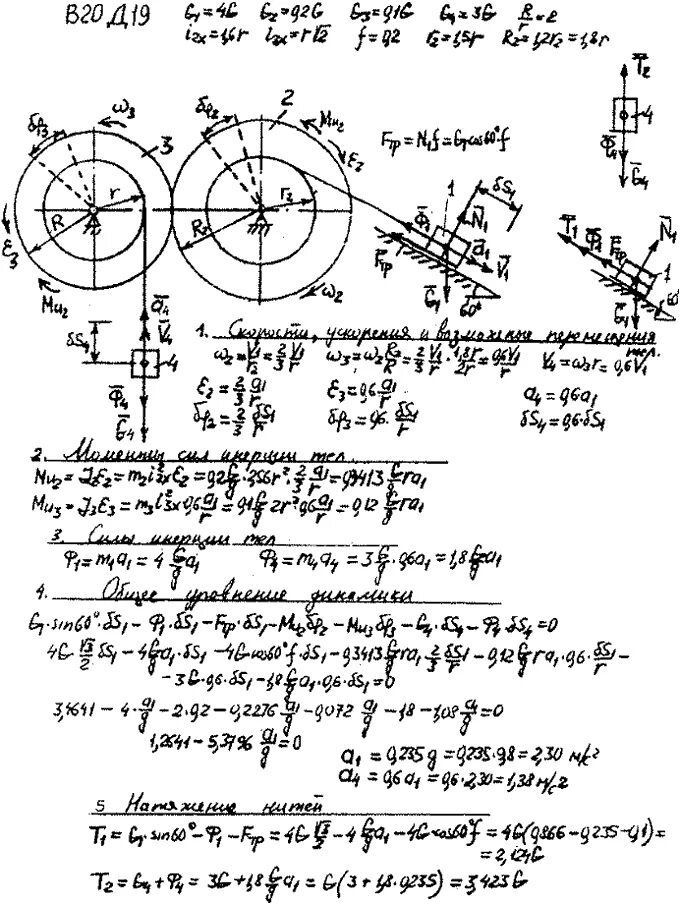 В20 Д19 G₁=4G G₂=0,2G G₃=0,1G G₄=3G R/r=2
i₂ₓ=1,6r i₃ₓ=r√2 f=0,2 r₂=1,5r R₂=1,2r₂=1,8r
T̄₂
4
Φ̄₄
Ḡ₄
δφ₃ ω₃ 3 δφ₂ 2 Mu₂ ε₂
r R ε₃ Mu₂ R₂ r₂ ω₂
Fтр=N₁f=G₁cos60°f
1 δS₁ Φ̄₁ N̄₁ ā₁ V̄₁ F̄тр Ḡ₁ 60°
T̄₁ Φ̄₁ F̄тр N̄₁ 1 Ḡ₁ 60°
ā₄ V̄₄ δS₄ 4 Φ̄₄ Ḡ₄
1. Скорости, ускорения и возможные перемещения тел.
ω₂=V₁/r₂=2/3 V₁/r ω₃=ω₂R₂/R=2/3 V₁/r·1,8r/2r=0,6V₁/r V₄=ω₃r=0,6V₁
ε₂=2/3 a₁/r ε₃=0,6a₁/r a₄=0,6a₁
δφ₂=2/3 δS₁/r δφ₃=0,6·δS₁/r δS₄=0,6·δS₁
2. Моменты сил инерции тел.
Mu₂=J₂ε₂=m₂i²₂ₓε₂=0,2G/g·2,56r²·2/3 a₁/r=0,3413G/g ra₁
Mu₃=J₃ε₃=m₃i²₃ₓ0,6a₁/r=0,1G/g 2r²·0,6a₁/r=0,12G/g ra₁
3. Силы инерции тел
Φ₁=m₁a₁=4G/g a₁ Φ₄=m₄a₄=3G/g·0,6a₁=1,8G/g a₁
4. Общее уравнение динамики
G₁·sin60°·δS₁-Φ₁·δS₁-Fтр·δS₁-Mu₂δφ₂-Mu₃δφ₃-G₄·δS₄-Φ₄·δS₄=0
4G·√3/2 δS₁-4G/g a₁·δS₁-4Gcos60°f·δS₁-0,3413G/g ra₁·2/3 δS₁/r-0,12G/g ra₁·0,6·δS₁/r-
-3G·0,6·δS₁-1,8G/g a₁·0,6·δS₁=0
3,4641-4·a₁/g-2·0,2-0,2276 a₁/g-0,072 a₁/g-1,8-1,08a₁/g=0
1,2641-5,3796 a₁/g=0
a₁=0,235g=0,235·9,8=2,30 м/с²
a₄=0,6a₁=0,6·2,30=1,38м/с2
5 Натяжение нитей
T₁=G₁·sin60°-Φ₁-Fтр=4G√3/2-4G/g a₁-4Gcos60°f=4G(0,866-0,235-0,1)=
=2,124G
T₂=G₄+Φ₄=3G+1,8G/g a₁=G(3+1,8·0,235)=3,423G